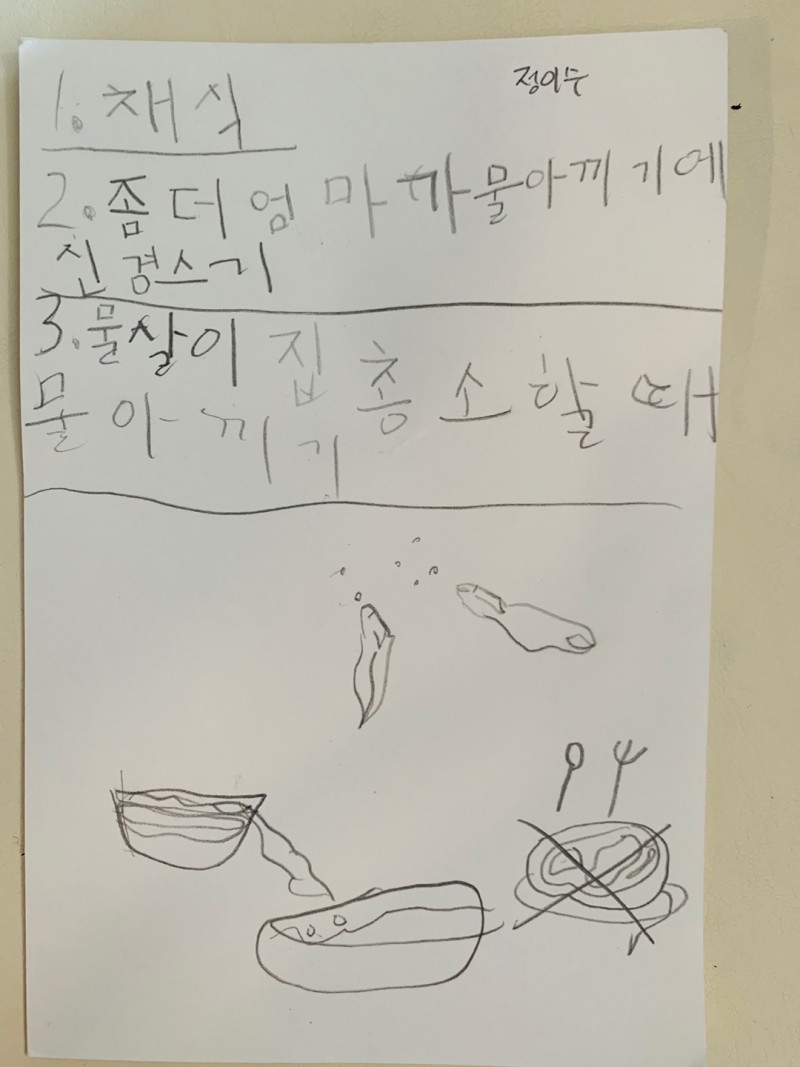 정이수
1. 채식
2. 좀 더 엄마가 물아끼기에
신경스기
3. 물살이 집 총소할 때
물아끼기